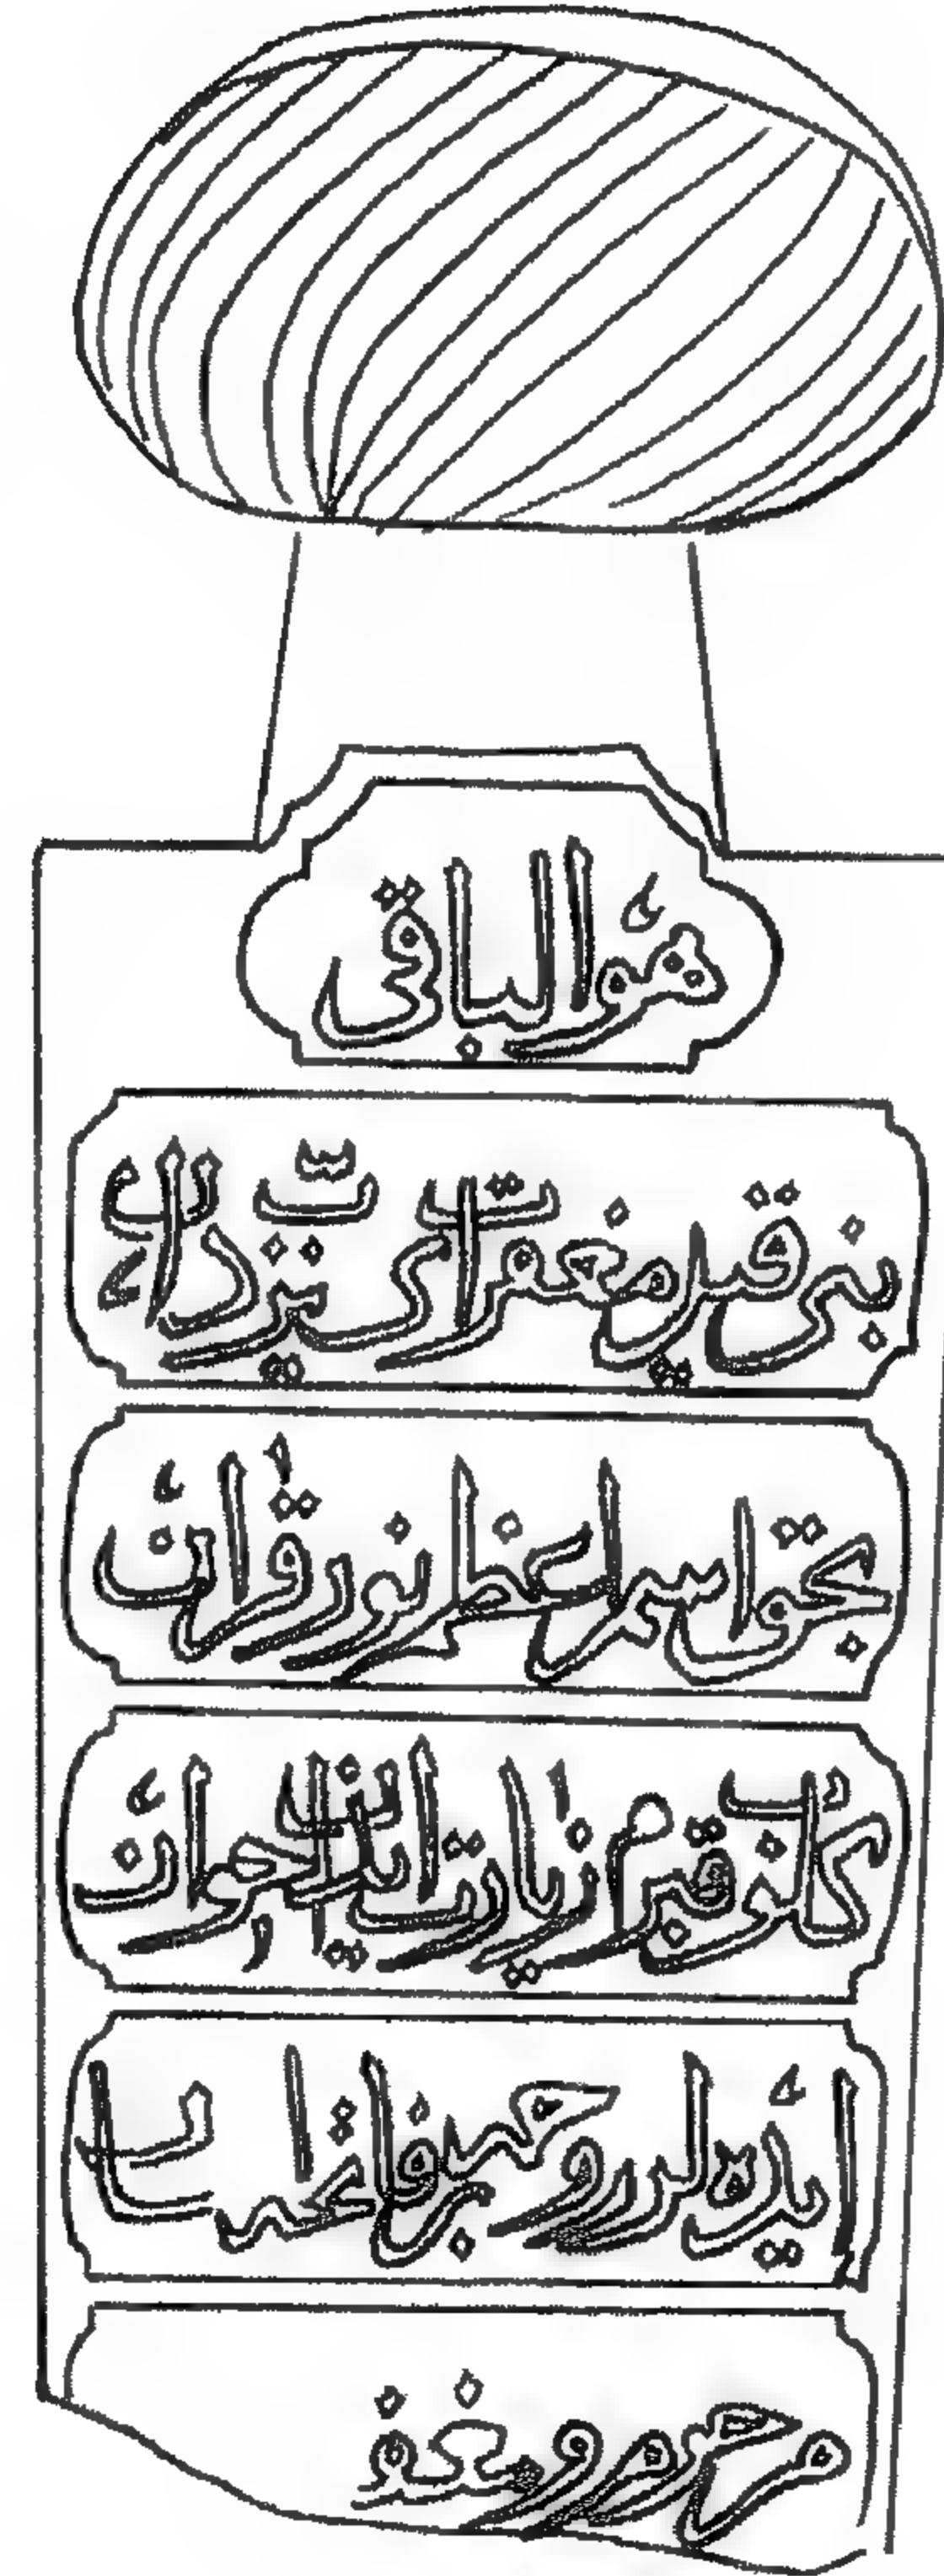 هو الباقى
بنى قيل مغفرت اى رب يزدان
بحق اسم اعظم نور قرآن
كلوب قبرم زيارت ايدن اخوان
ايده لر روحمه بر فاتحه احسان
مرحوم و مغفو